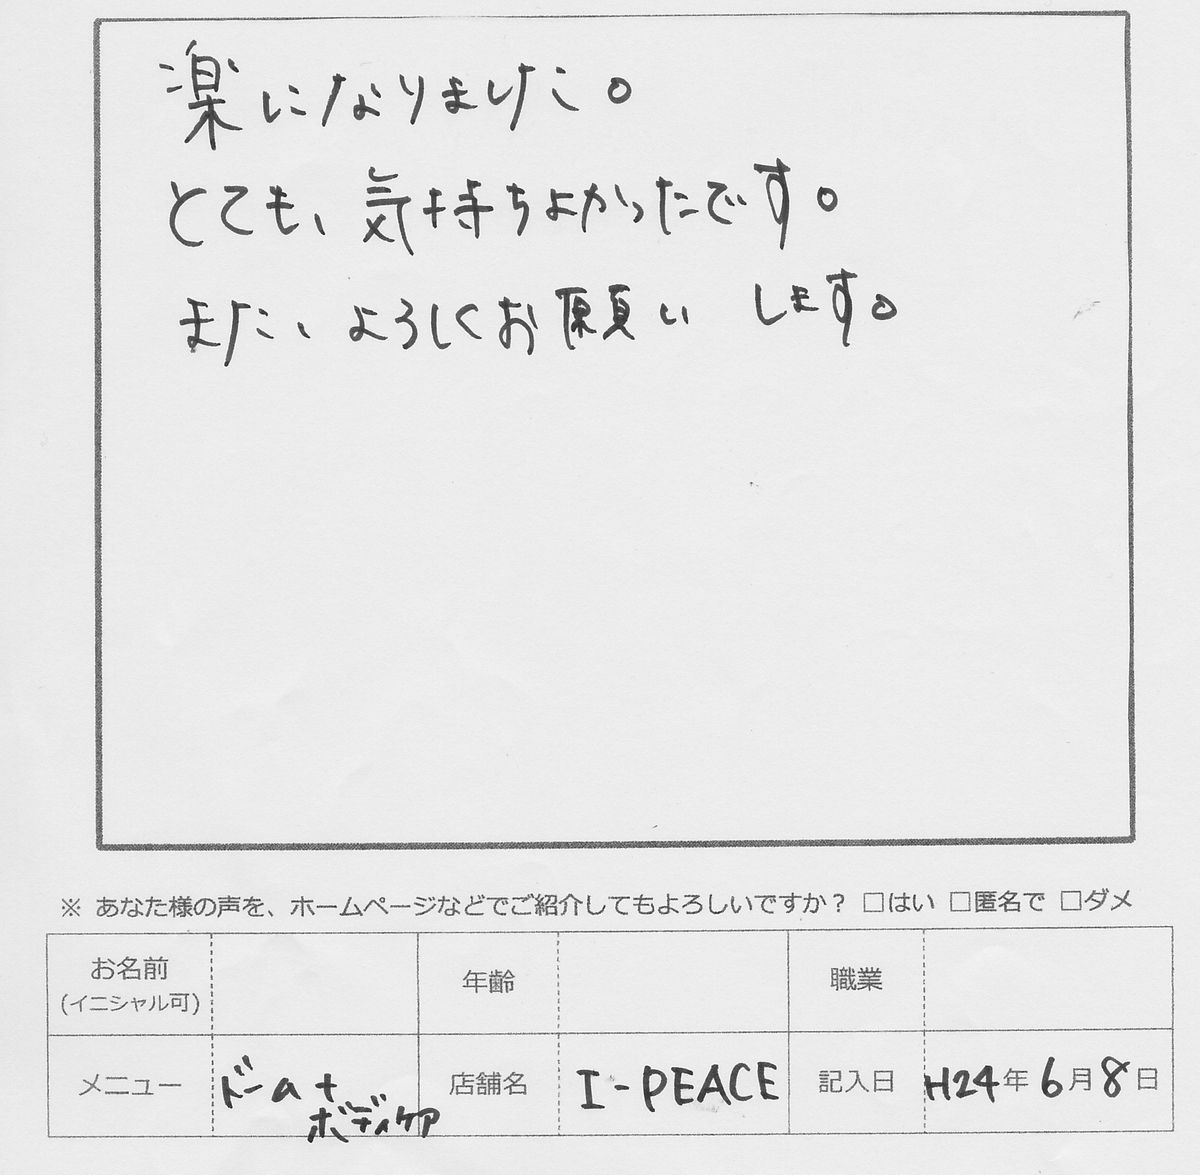 楽になりました。
とても、気持ちよかったです。
また、よろしくお願い します。
※ あなた様の声を、ホームページなどでご紹介してもよろしいですか？ □はい □匿名で □ダメ
お名前
(イニシャル可)
年齢
職業
メニュー
ボディケア
店舗名
I-PEACE
記入日
H24年 6月 8日